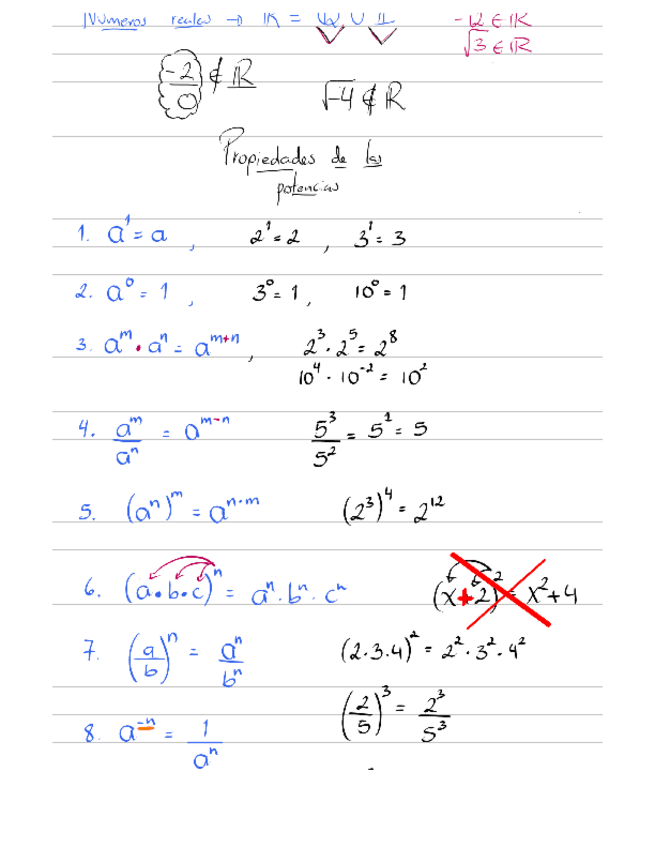 Números reales → ℝ = ℚ ∪ 𝕀    -12 ∈ ℝ
√3 ∈ ℝ
-2/0 ∉ ℝ    √-4 ∉ ℝ
Propiedades de las
potencias
1. a¹ = a , 2¹ = 2 , 3¹ = 3
2. a⁰ = 1 , 3⁰ = 1 , 10⁰ = 1
3. aᵐ · aⁿ = aᵐ⁺ⁿ , 2³ · 2⁵ = 2⁸
10⁴ · 10⁻² = 10²
4. aᵐ/aⁿ = aᵐ⁻ⁿ    5³/5² = 5¹ = 5
5. (aⁿ)ᵐ = aⁿ·ᵐ    (2³)⁴ = 2¹²
6. (a·b·c)ⁿ = aⁿ · bⁿ · cⁿ    (x+2)² = x²+4
7. (a/b)ⁿ = aⁿ/bⁿ    (2·3·4)² = 2² · 3² · 4²
(2/5)³ = 2³/5³
8. a⁻ⁿ = 1/aⁿ